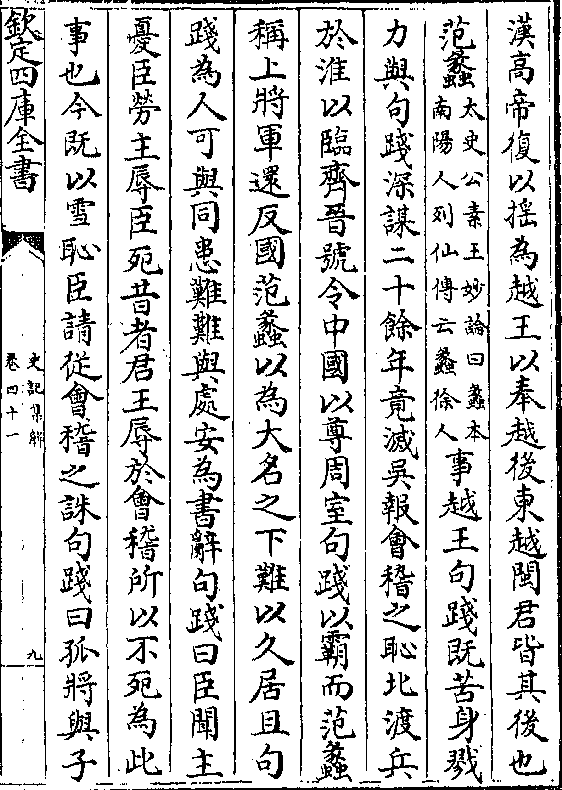 漢高帝復以揺為越王以奉越後東越閩君皆其後也
范蠡太史公素王妙論曰蠡本南陽人列仙傳云蠡徐人事越王句踐既苦身戮
力與句踐深謀二十餘年竟滅吳報會稽之恥北渡兵
於淮以臨齊晉號令中國以尊周室句踐以霸而范蠡
稱上將軍還反國范蠡以為大名之下難以久居且句
踐為人可與同患難難與處安為書辭句踐曰臣聞主
憂臣勞主辱臣死昔者君王辱於會稽所以不死為此
事也今既以雪恥臣請從會稽之誅句踐曰孤將與子
欽定四庫全書
史記集解
卷四十一
九